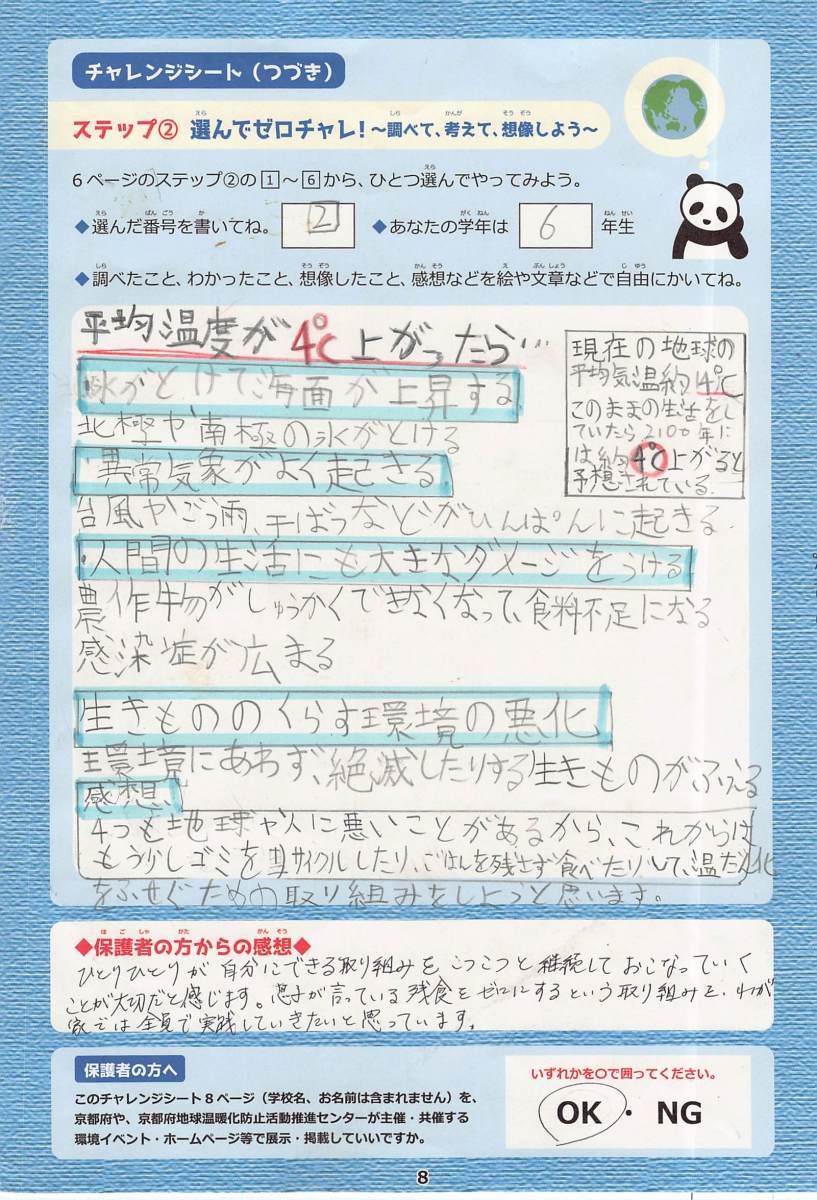 チャレンジシート（つづき）
ステップ② 選んでゼロチャレ！～調べて、考えて、想像しよう～
6ページのステップ②の1～6から、ひとつ選んでやってみよう。
◆選んだ番号を書いてね。 2 ◆あなたの学年は 6 年生
◆調べたこと、わかったこと、想像したこと、感想などを絵や文章などで自由にかいてね。
平均温度が4℃上がったら…
氷がとけて海面が上昇する
北極や南極の氷がとける
異常気象がよく起きる
台風やごう雨、干ばつなどがひんぱんに起きる
人間の生活にも大きなダメージをうける
農作物がしゅうかくできなくなって、食料不足になる
感染症が広まる
生きもののくらす環境の悪化
環境にあわず、絶滅したりする生きものがふえる
現在の地球の
平均気温約14℃
このままの生活をし
ていたら2100年に
は約4℃上がると
予想されている。
感想、
4つも地球や人に悪いことがあるから、これからは
もう少しゴミをリサイクルしたり、ごはんを残さず食べたりして、温だん化
をふせぐための取り組みをしようと思います。
◆保護者の方からの感想◆
ひとりひとりが自分にできる取り組みをこつこつと継続しておこなっていく
ことが大切だと感じます。息子が言っている残食をゼロにするという取り組みを、わが
家では全員で実践していきたいと思っています。
保護者の方へ
このチャレンジシート8ページ（学校名、お名前は含まれません）を、
京都府や、京都府地球温暖化防止活動推進センターが主催・共催する
環境イベント・ホームページ等で展示・掲載していいですか。
いずれかを〇で囲ってください。
OK・NG
8